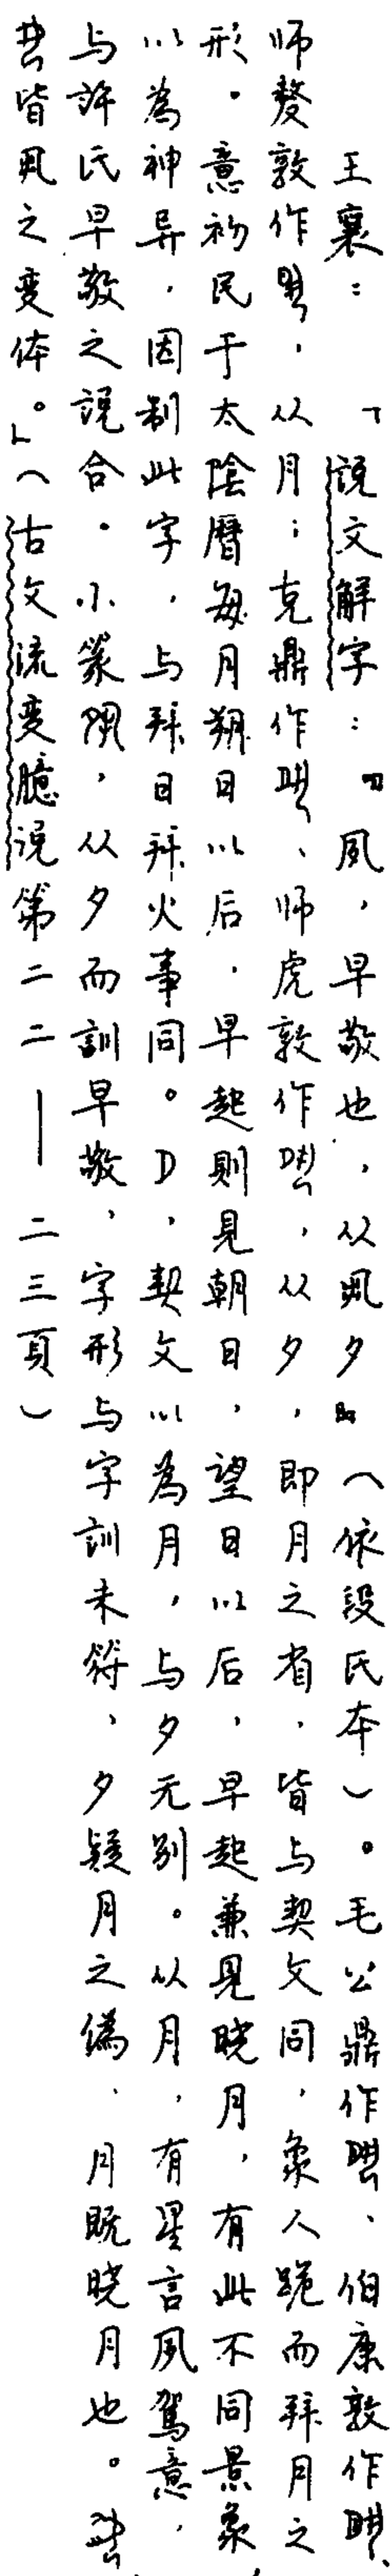 王襄：「說文解字：『夙，早敬也，从夙夕』（依段氏本）。毛公鼎作、伯康敦作、
师𠭰敦作，从月；克鼎作、师虎敦作，从夕，即月之省，皆与契文同，象人跪而拜月之
形。意初民于太陰曆每月朔日以后，早起則見朝日，望日以后，早起兼見晓月，有此不同景象，
以為神异，因制此字，与拜日拜火事同。D，契文以為月，与夕无别。从月，有星言夙駕意，
与許氏早敬之說合。小篆，从夕而訓早敬，字形与字訓未符，夕疑月之偽，月既晓月也。
皆夙之变体。」（古文流变臆说第二二——二三頁）